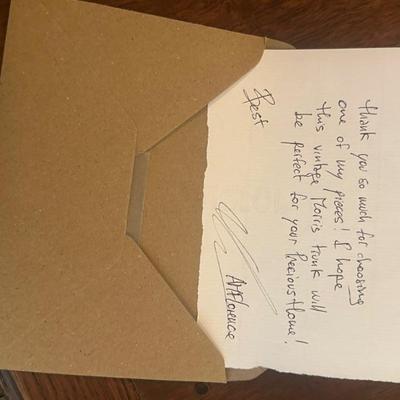 thank you so much for choosing
one of my pieces! I hope
this vintage Morris trunk will
be perfect for your Precious Home!
Best
ArtFlorence